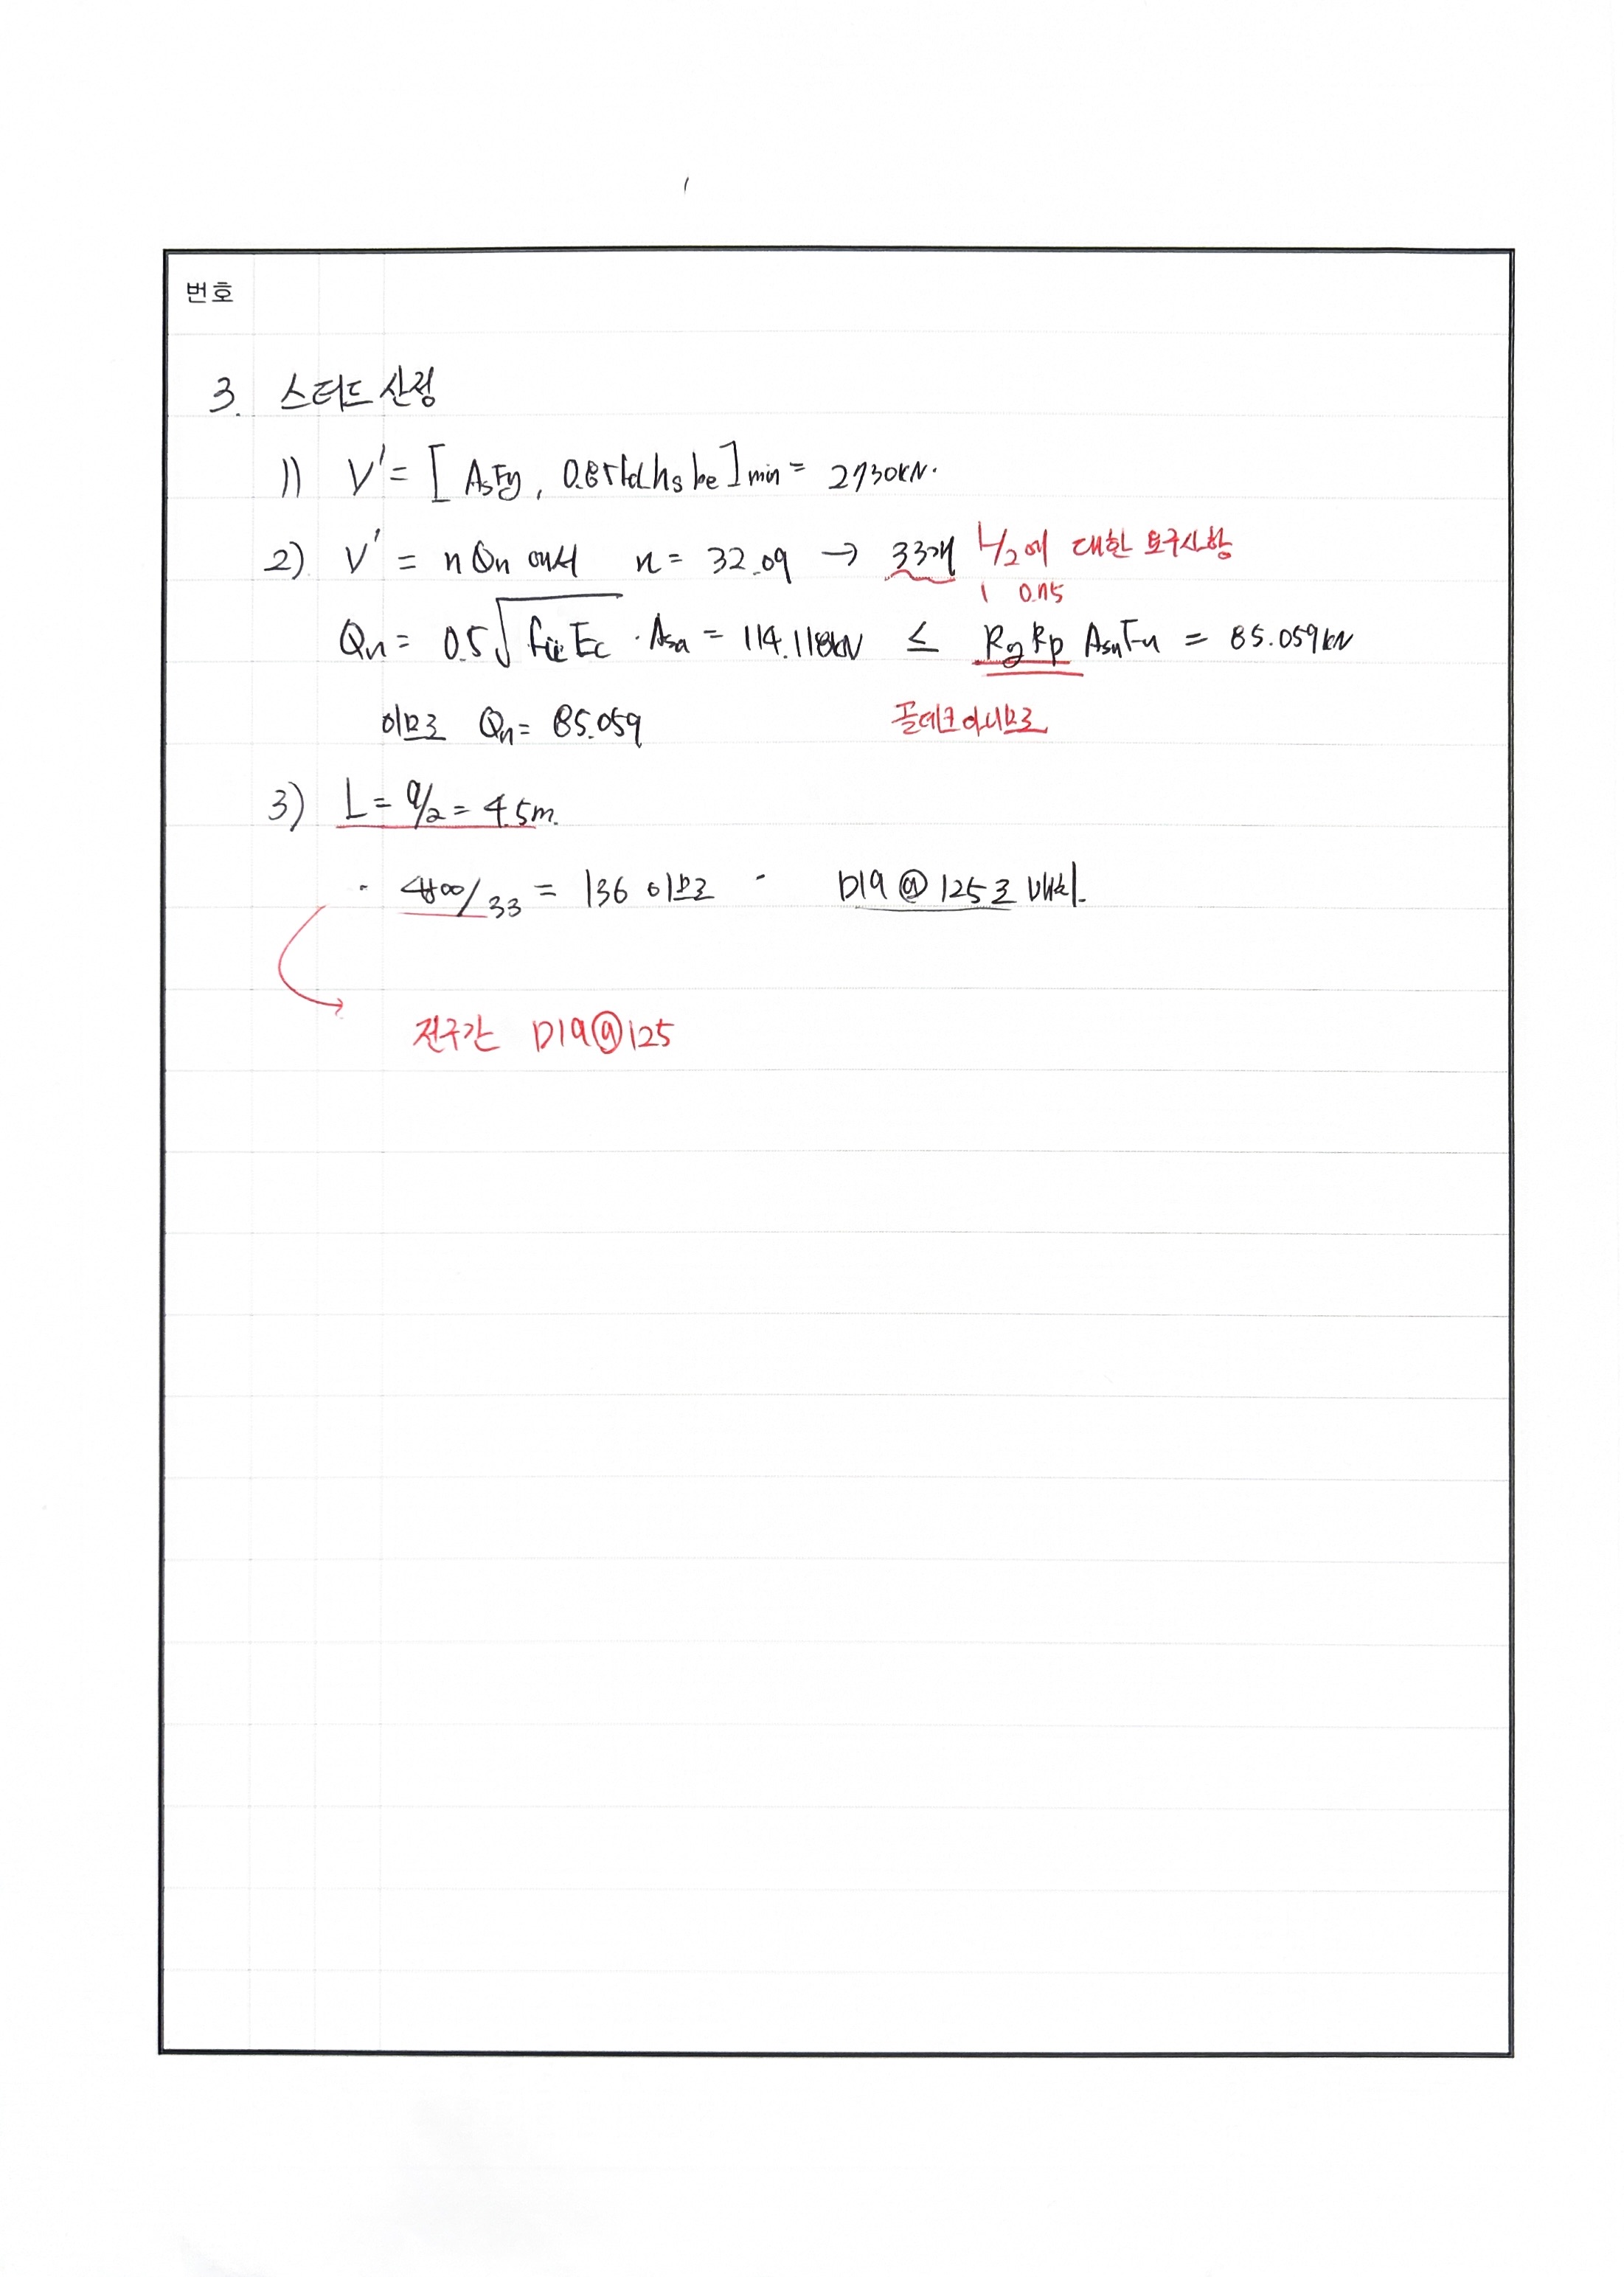 번호
3. 스터드 산정
1) V' = [ AsFy, 0.85fck hs be ] min = 2730kN.
2) V' = n Qn 에서 n = 32.09 → 33개 L/2에 대한 요구사항
1 0.75
Qn = 0.5√fck Ec · Asa = 114.118kN ≤ Rg Rp Asa Fu = 85.059kN
이므로 Qn = 85.059 골데크아니므로
3) L = 9/2 = 4.5m.
· 4500/33 = 136 이므로 - D19 @ 125로 배치.
전구간 D19@125